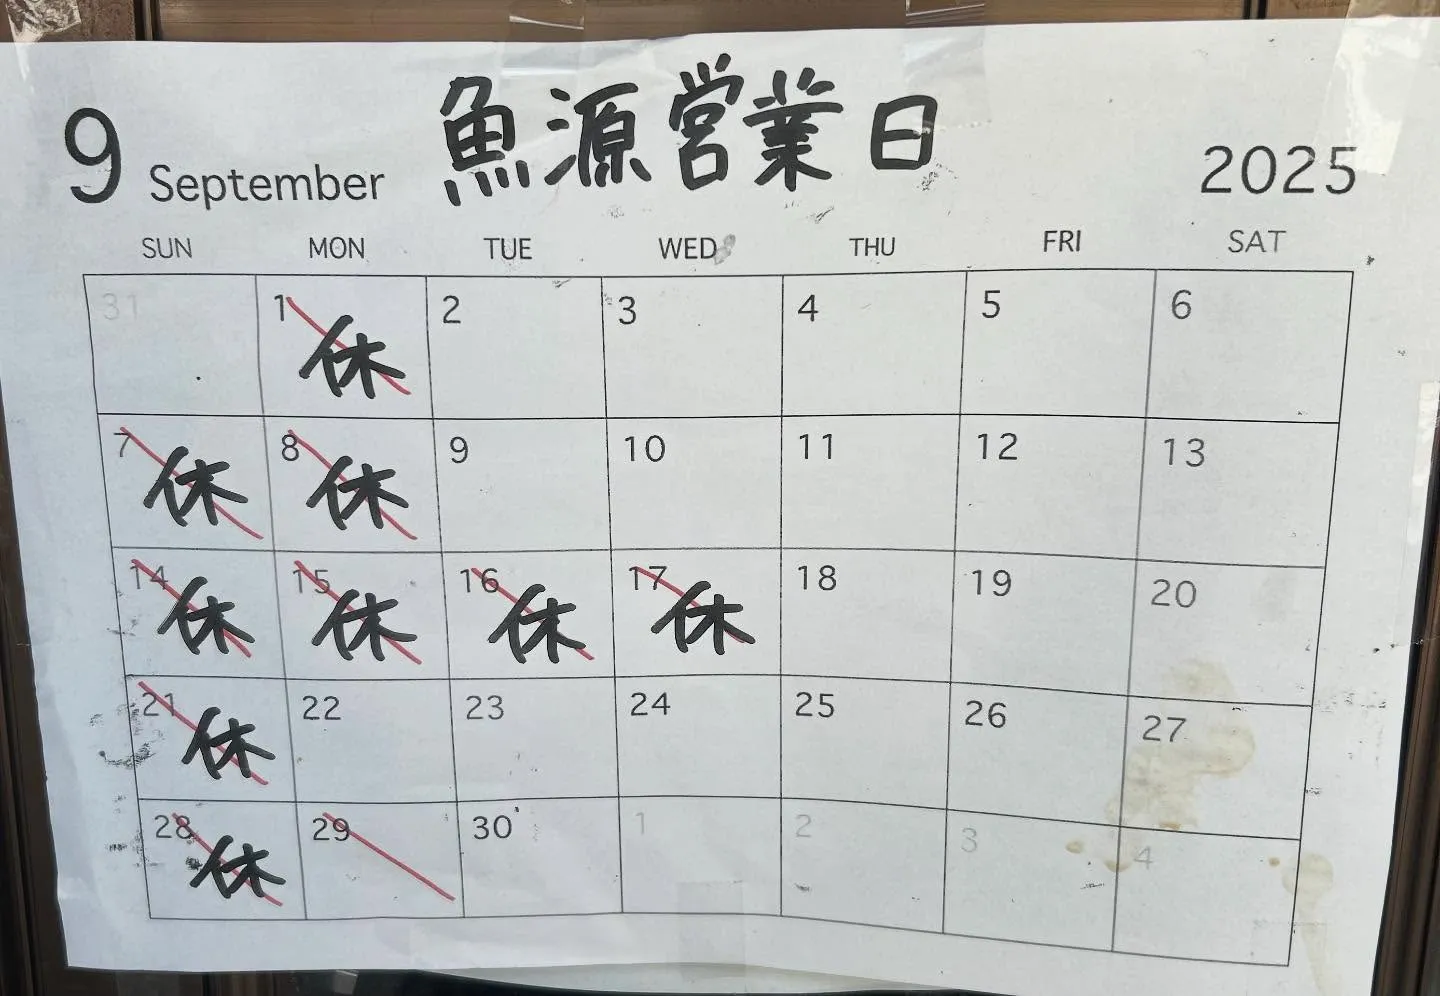 9 September 魚源営業日 2025
SUN MON TUE WED THU FRI SAT
31 1 2 3 4 5 6
休
7 8 9 10 11 12 13
休 休
14 15 16 17 18 19 20
休 休 休 休
21 22 23 24 25 26 27
休
28 29 30 1 2 3 4
休